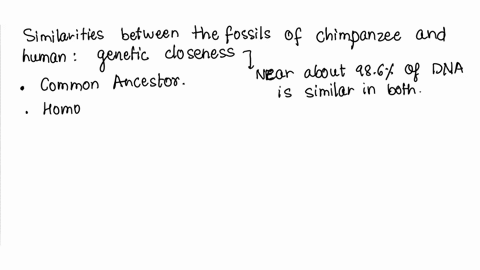 Similarities between the fossils of chimpanzee and
human : genetic closeness
Near about 98.6% of DNA
is similar in both.
• Common Ancestor.
• Homo